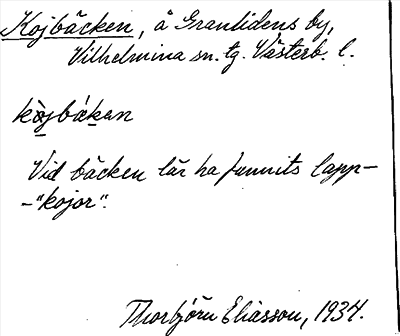 Kojbäcken, å Granlidens by,
Vilhelmina sn. tg. Västerb. l.
kòjbákan
Vid bäcken lär ha funnits lapp-
-"kojor".
Thorbjörn Eliasson, 1934.